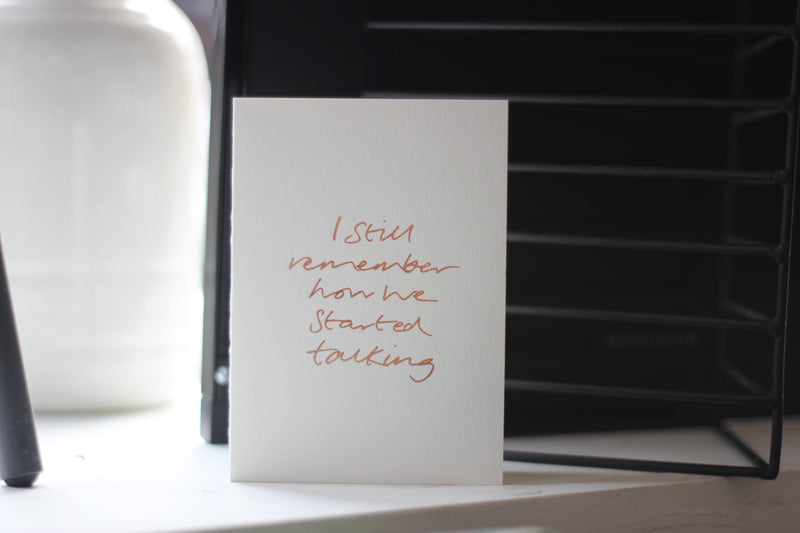 I still
remember
how we
started
talking